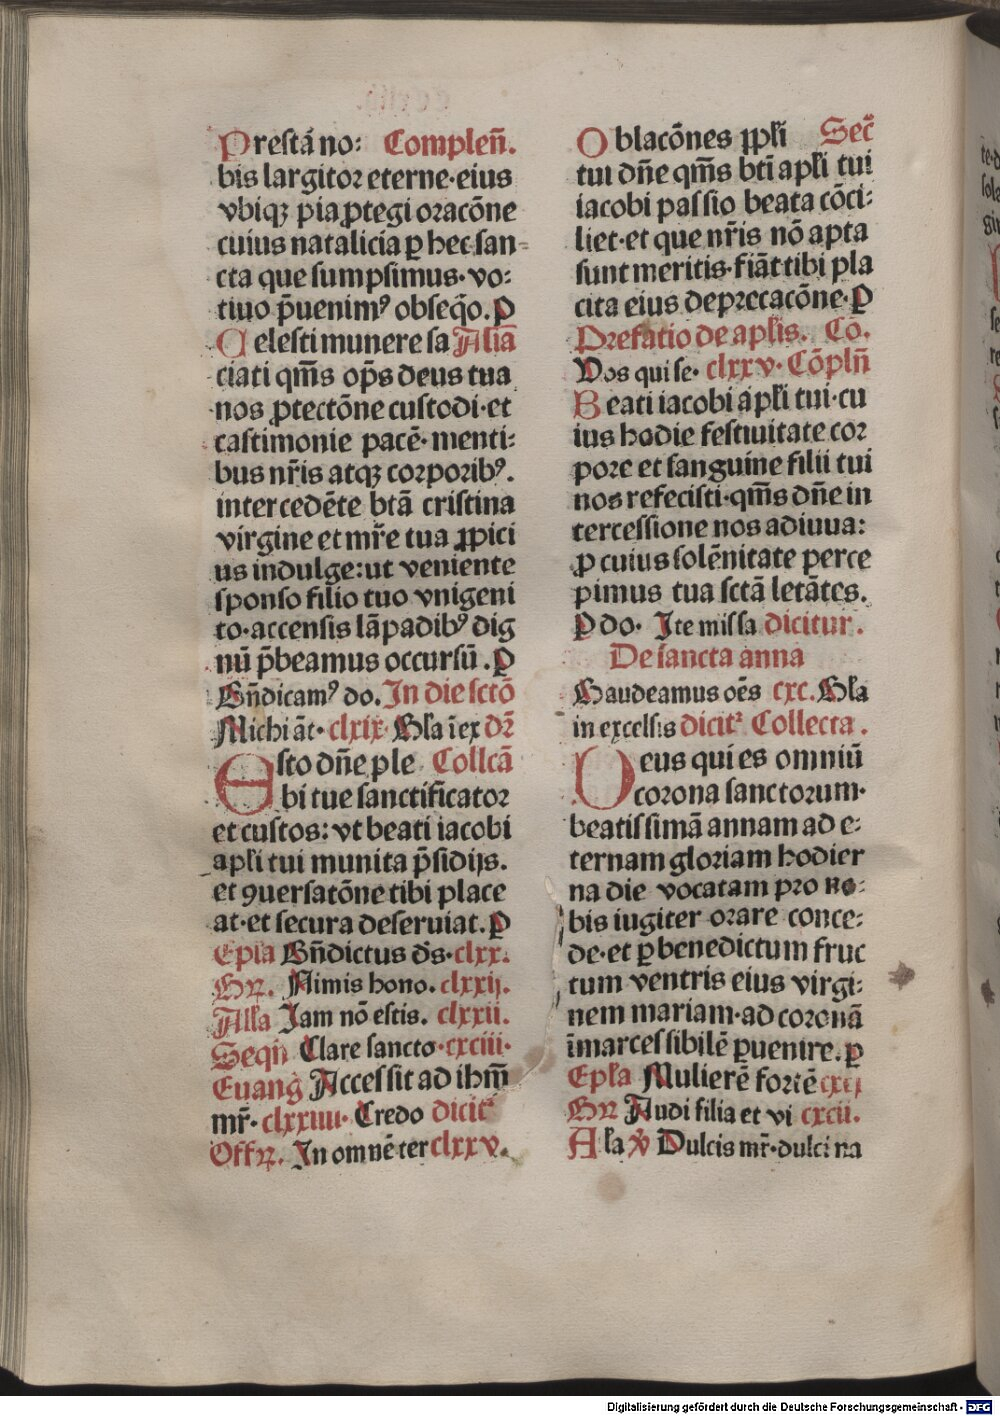 Prestá no: Compleñ.
bis largitor eterne·eius
vbiqȝ pia ꝓtegi oracōne
cuius natalicia ꝑ hec san-
cta que sumpsimus· vo:
tiuo p̄uenimꝰ obseq̄o. P
Celesti munere sa Aliā
ciati qm̄s op̄s deus tua
nos ꝓtectōne custodi·et
castimonie pacē· menti:
bus nr̄is atqȝ corporibꝰ.
intercedēte btā cristina
virgine et mr̄e tua ꝓpici
us indulge:ut veniente
sponso filio tuo vnigeni
to·accensis lāpadibꝰ dig
nū p̄beamus occursū. P
Bn̄dicamꝰ do. In die sctō
Michi āt· clxix Gła īex dr̄
Esto dn̄e ple Collcā
bi tue sanctificator
et custos: vt beati iacobi
apłi tui munita p̄sidijs.
et ꝯuersatōne tibi place
at·et secura deseruiat. P
Epła Bn̄dictus dn̄s·clxx.
Gꝛ. Nimis hono. clxxij.
Alła Iam nō estis. clxxii.
Seqn̄ Clare sancto·cxciii·
Euang Accessit ad ihm̄
mr̄· clxxiiii· Credo dicitꝛ
Offꝛ. In omnē ter clxxv.
Oblacōnes ꝓpłi Sec̄
tui dn̄e qm̄s bti apłi tui
iacobi passio beata cōci:
liet·et que nr̄is nō apta
sunt meritis·fiāt tibi pla
cita eius deprecacōne·P
Prefatio de apłis. Cō.
Vos qui se· clxxv· Cōpln̄
Beati iacobi apłi tui·cu
ius hodie festiuitate cor
pore et sanguine filii tui
nos refecisti·qm̄s dn̄e in
tercessione nos adiuua:
ꝓ cuius solēnitate perce
pimus tua sctā letātes.
P do· Ite missa dicitur.
De sancta anna
Gaudeamus oēs cxc. Gła
in excelsis dicitꝛ Collecta.
Deus qui es omniū
corona sanctorum·
beatissimā annam ad e:
ternam gloriam hodier
na die vocatam pro no:
bis iugiter orare conce:
de·et ꝑ benedictum fruc
tum ventris eius virgi:
nem mariam·ad coronā
īmarcessibilē ꝑuenire. P
Epła Mulierē fortē cxcj
Gꝛ Audi filia et vi cxcii.
Ała v̄ Dulcis mr̄·dulci na